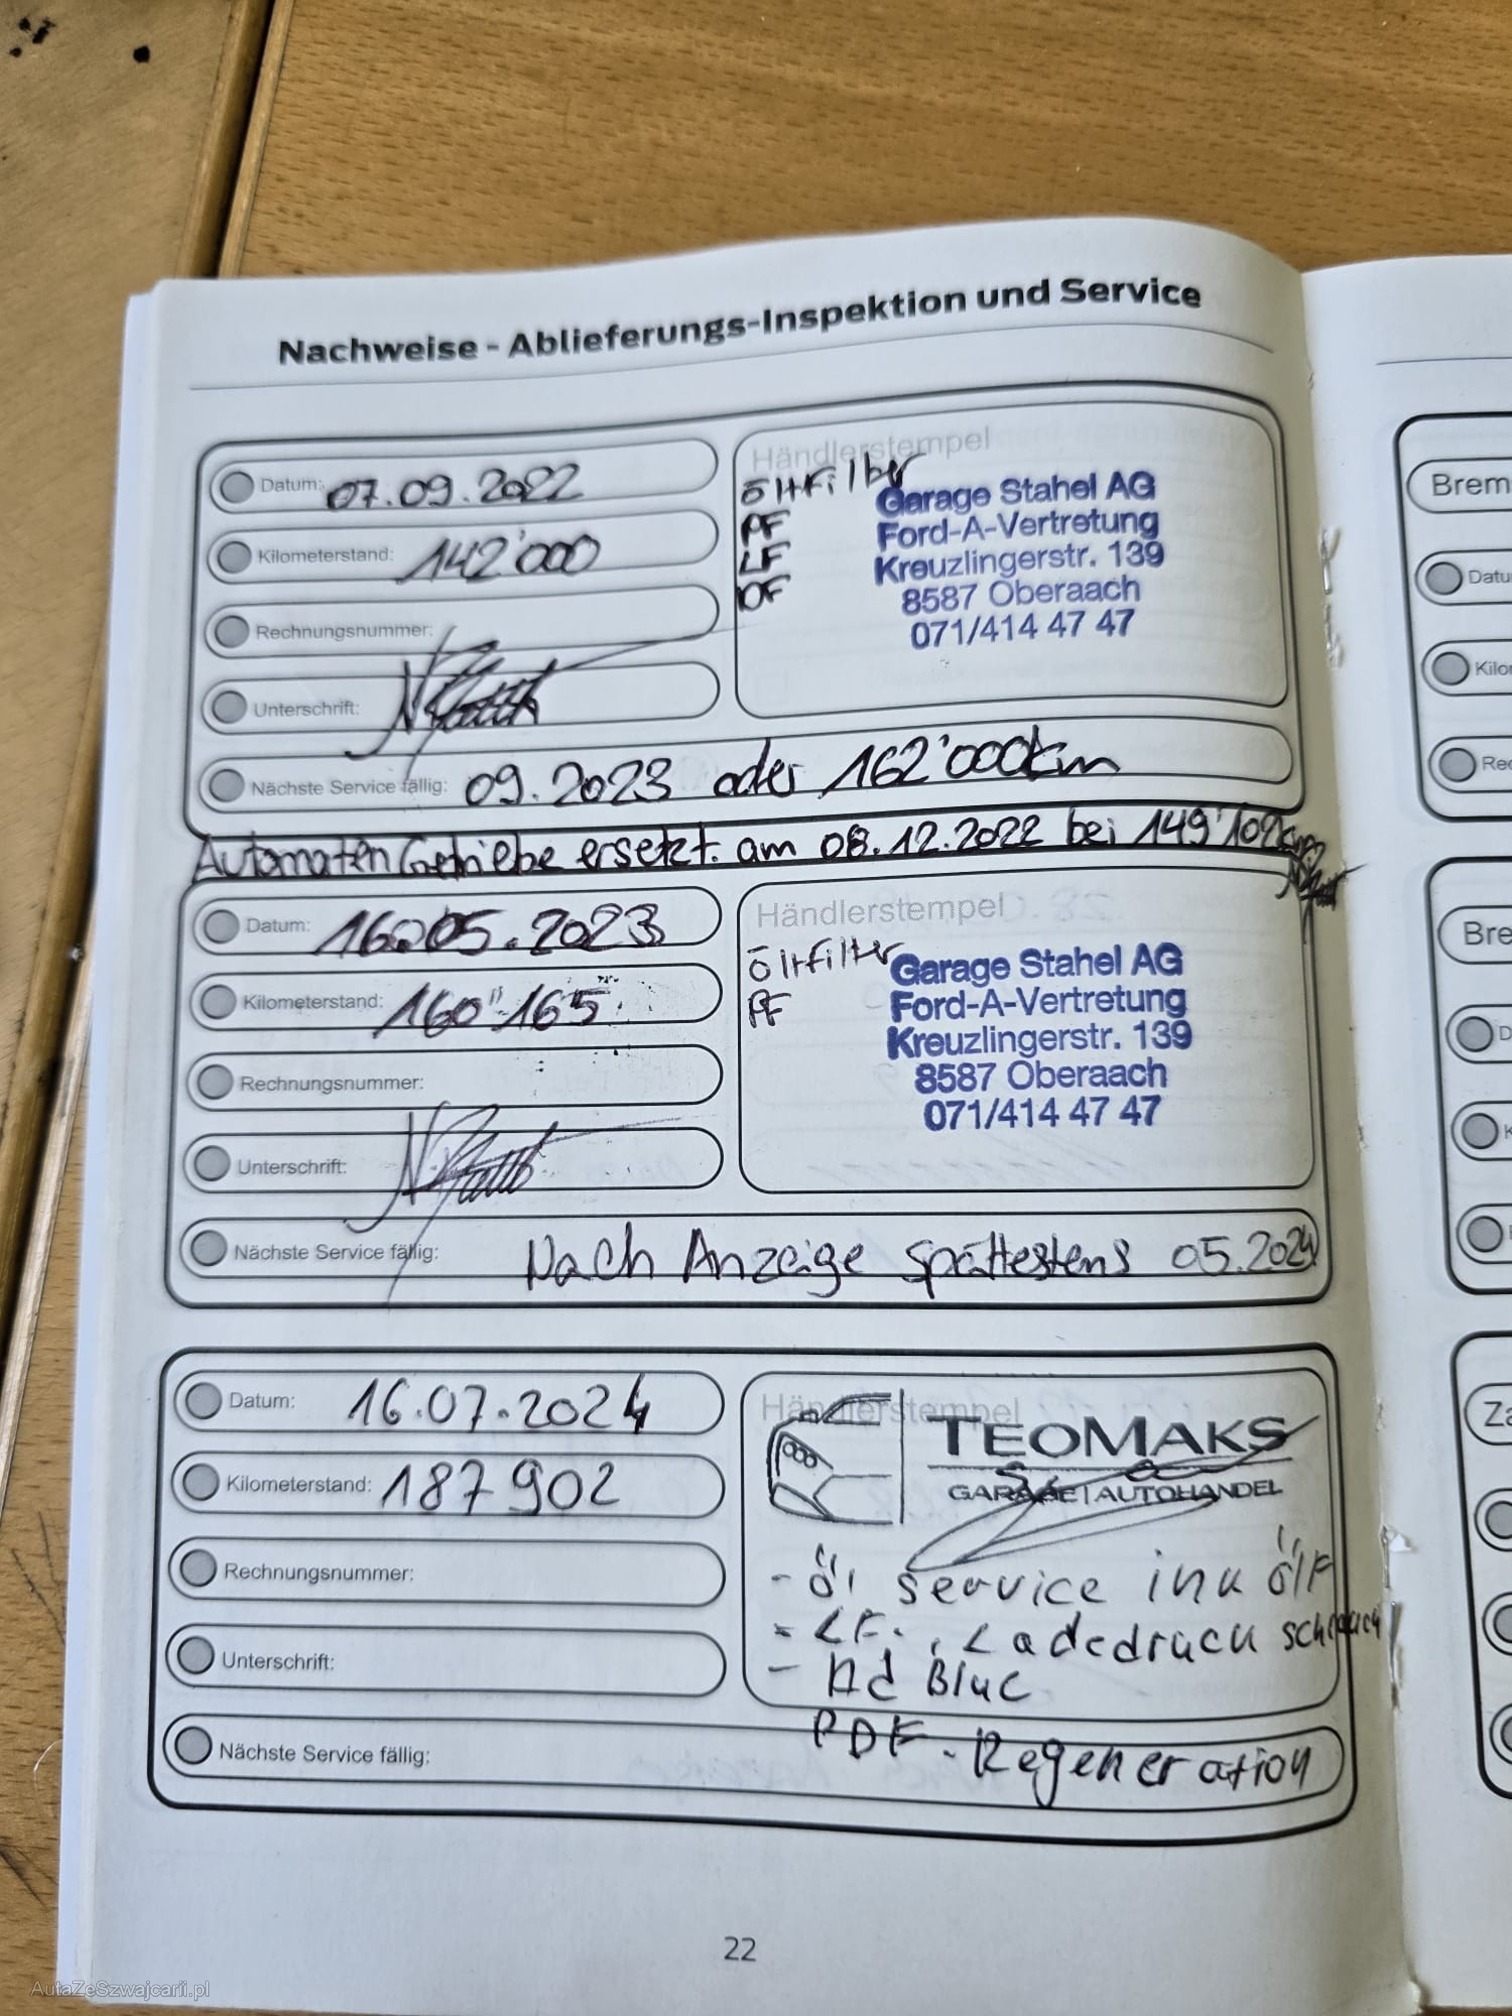 Nachweise - Ablieferungs-Inspektion und Service
Datum: 07.09.2022
Kilometerstand: 142'000
Rechnungsnummer:
Unterschrift:
Händlerstempel
Öl+Filter
PF
LF
Garage Stahel AG
Ford-A-Vertretung
Kreuzlingerstr. 139
8587 Oberaach
071/414 47 47
Nächste Service fällig: 09.2023 oder 162'000km
Automaten Getriebe ersetzt. am 08.12.2022 bei 149'102km
Datum: 16.05.2023
Kilometerstand: 160"165
Rechnungsnummer:
Unterschrift:
Händlerstempel
Öl+Filter
PF
Garage Stahel AG
Ford-A-Vertretung
Kreuzlingerstr. 139
8587 Oberaach
071/414 47 47
Nächste Service fällig: Nach Anzeige Spättestens 05.2024
Datum: 16.07.2024
Kilometerstand: 187902
Rechnungsnummer:
Unterschrift:
Händlerstempel
TEOMAKS
GARAGE | AUTOHANDEL
- Öl service ink ÖlF
- LF. , Ladedruck
- Ad Blue
Nächste Service fällig: PDF - Regeneration
22
Brem
Datu
Kilo
Rec
Bre
D
K
Za
AutaZeSzwajcarii.pl